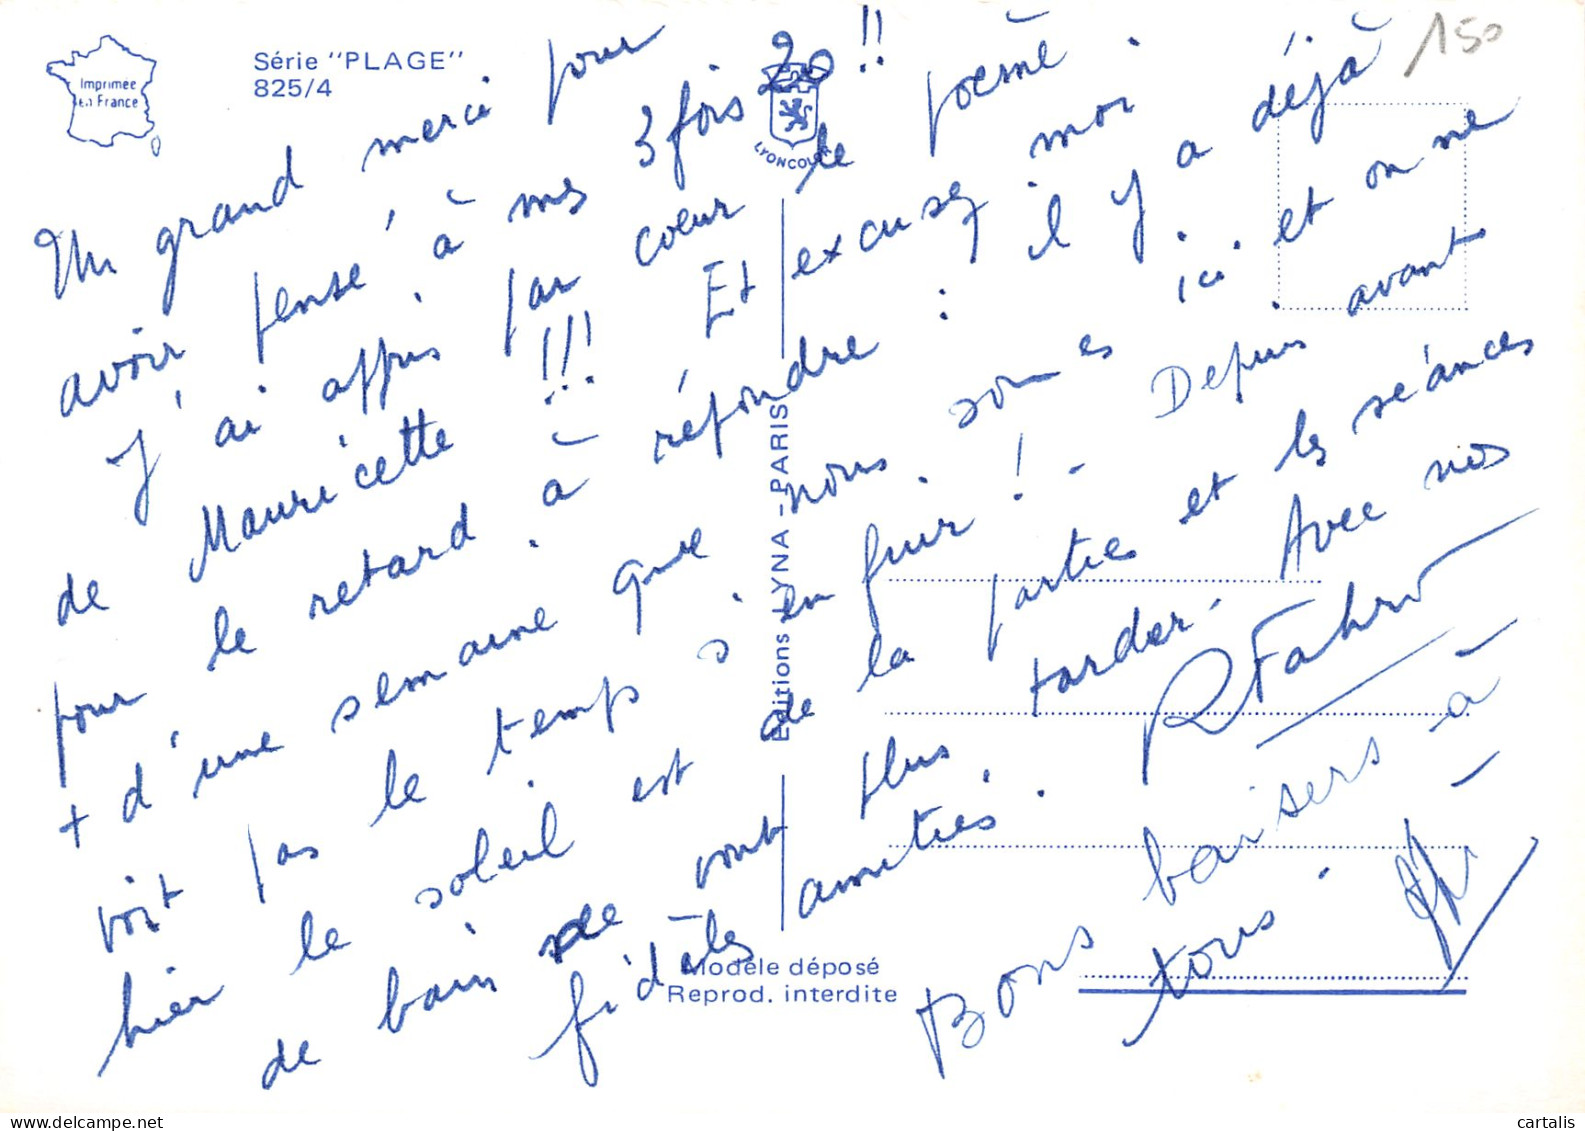 Imprimée
en France
Série "PLAGE"
825/4
LYONCOLOR
150
Un grand merci pour
avoir pensé à mes 3 fois 20 !!
J'ai appris par coeur le poème
de Mauricette !!! Et excusez moi
pour le retard à répondre : il y a déjà
+ d'une semaine que nous sommes ici. et on ne
voit pas le temps s'en fuir ! - Depuis avant
hier le soleil est de la partie et les séances
de bain de vont plus tarder. Avec nos
fidèles amitiés.
Bons baisers à
tous.
Editions LYNA - PARIS
Modèle déposé
Reprod. interdite
delcampe.net
cartalis